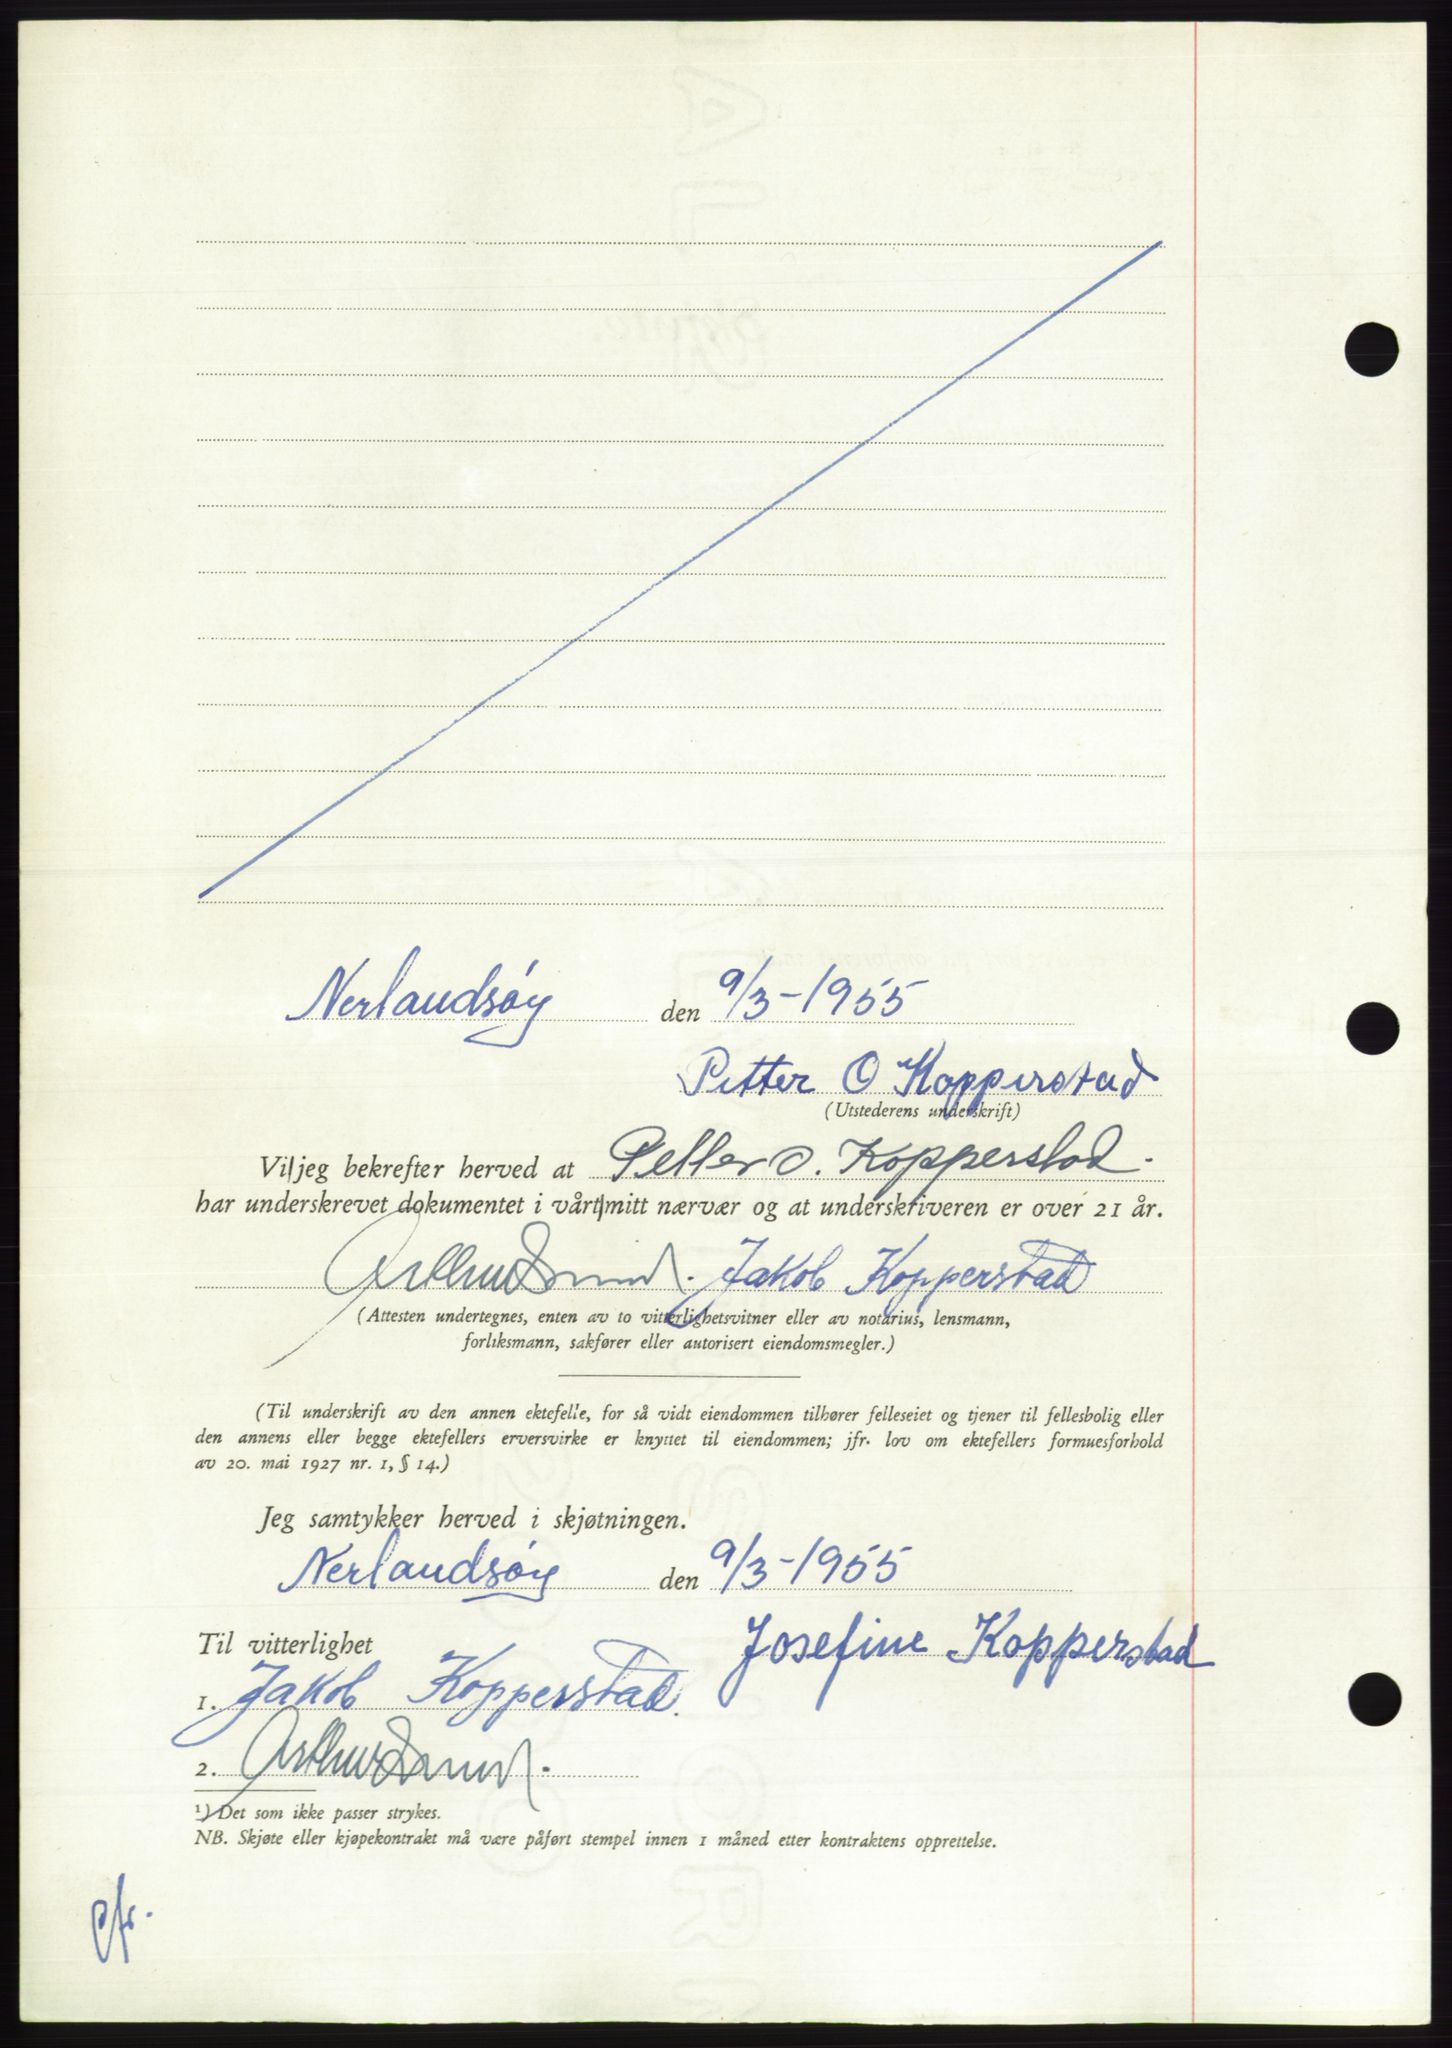 Nerlandsøy den 9/3-1955
Petter O Kopperstad
(Utstederens underskrift)
Vi|jeg bekrefter herved at Petter O. Kopperstad.
har underskrevet dokumentet i vårt|mitt nærvær og at underskriveren er over 21 år.
Arthur Jakob Kopperstad
(Attesten undertegnes, enten av to vitterlighetsvitner eller av notarius, lensmann,
forliksmann, sakfører eller autorisert eiendomsmegler.)
(Til underskrift av den annen ektefelle, for så vidt eiendommen tilhører felleseiet og tjener til fellesbolig eller
den annens eller begge ektefellers erversvirke er knyttet til eiendommen; jfr. lov om ektefellers formuesforhold
av 20. mai 1927 nr. 1, § 14.)
Jeg samtykker herved i skjøtningen.
Nerlandsøy den 9/3-1955
Josefine Kopperstad
Til vitterlighet
1. Jakob Kopperstad.
2. Arthur
¹) Det som ikke passer strykes.
NB. Skjøte eller kjøpekontrakt må være påført stempel innen 1 måned etter kontraktens opprettelse.